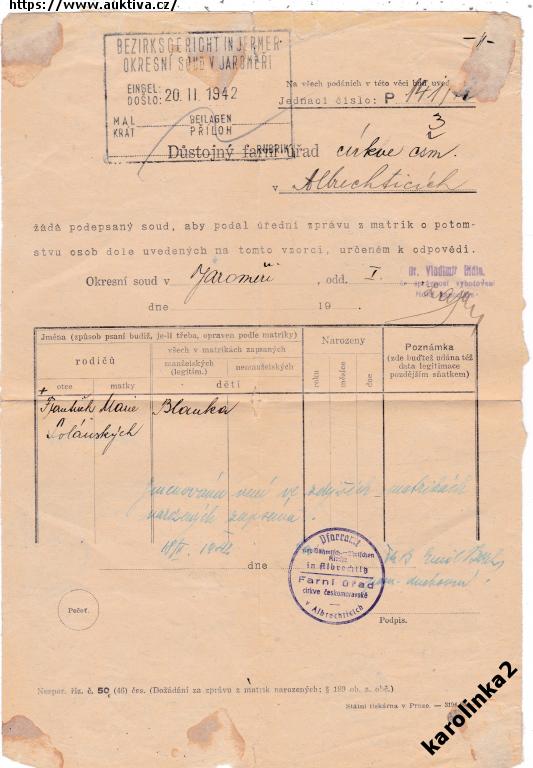 https://www.auktiva.cz/
BEZIRKSGERICHT IN JERMER-
OKRESNÍ SOUD V JAROMĚŘI
EINGEL:
DOŠLO: 20 II. 1942
MAL BEILAGEN
KRÁT PŘÍLOH
RUBRIK
Na všech podáních v této věci buď uved
Jednací číslo: P 141/
3
2
Důstojný farní úřad církve čsm.
v Albrechticích
žádá podepsaný soud, aby podal úřední zprávu z matrik o potom-
stvu osob dole uvedených na tomto vzorci, určeném k odpovědi.
Okresní soud v Jaroměři, odd. I.
Dr. Vladimír
za správnost vyhotovení
dne 19
Jména (způsob psaní budiž, je-li třeba, opraven podle matriky)
rodičů
všech v matrikách zapsaných
manželských (legitim.)
nemanželských
otce
matky
dětí
Narozeny
roku
měsíce
dne
Poznámka
(zde buďtež udána též
data legitimace
pozdějším sňatkem)
+
František Marie Blanka
Jmenovaná není ve zdejších matrikách
narozených zapsána!
18/II. 1942
dne
Pfarramt
der böhmisch-mährischen
Kirche
in Albrechtitz
Farní úřad
církve českomoravské
v Albrechticích
Emil
duchovní
Pečeť.
Podpis.
Nespor. říz. č. 50 (46) čes. (Dožádání za zprávu z matrik narozených; § 189 ob. z. obč.)
Státní tiskárna v Praze. — 3194
karolinka2